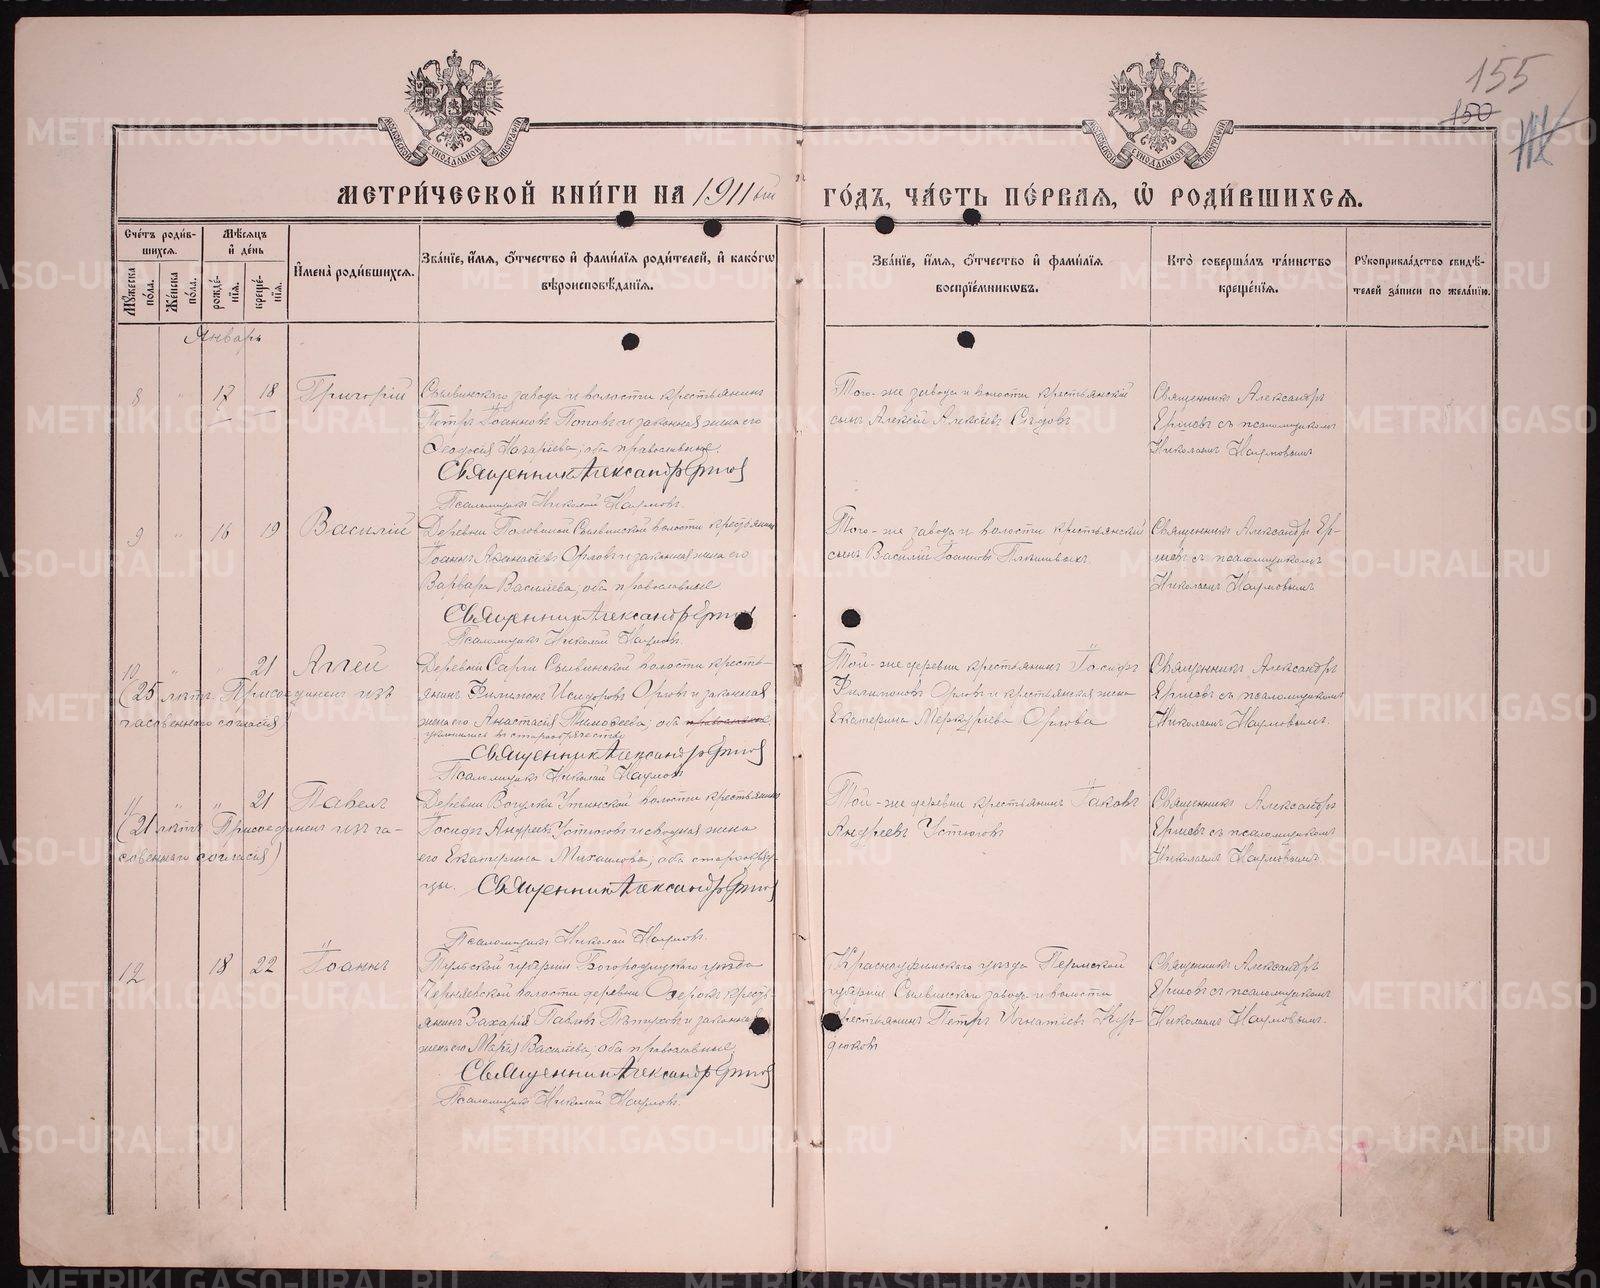 155
150
МОСКОВСКОЙ СѴНОДАЛЬНОЙ ТИПОГРАФІИ
МОСКОВСКОЙ СѴНОДАЛЬНОЙ ТИПОГРАФІИ
МЕТРИ́ЧЕСКОЙ КНИ́ГИ НА 1911 вый ГО́ДЪ, ЧА́СТЬ ПЕ́РВАѦ, Ѽ РОДИ́ВШИХСѦ.
Сче́тъ роди́в-
шихсѧ.
Мꙋжеска по́ла.
Же́нска по́ла.
Мѣ́сѧцъ
и҆ де́нь
рожде́-
нїѧ.
креще́-
нїѧ.
И҆мена̀ роди́вшихсѧ.
Зва́нїе, и҆́мѧ, ѻ҆́тчество и҆ фамилїѧ роди́телей, и҆ како́гѡ
вѣроисповѣ́данїѧ.
Зва́нїе, и҆́мѧ, ѻ҆́тчество и҆ фами́лїѧ
воспрїе́мникѡвъ.
Кто̀ соверша́лъ та́инство
креще́нїѧ.
Рꙋкоприкла́дство свидѣ́-
телей за́писи по жела́нїю.
Январь
8 " 17 18 Григорій
Сылвинскаго завода и волости крестьянинъ
Петръ Іоанновъ Поповъ и законная жена его
Ѳеодосія Назаріева, оба православные.
Священникъ Александръ Ершов
Псаломщикъ Николай Наумовъ.
Того-же завода и волости крестьянскій
сынъ Алексѣй Алексѣевъ
Священникъ Александръ
Ершовъ съ псаломщикомъ
Николаемъ Наумовымъ
9 " 16 19 Василій
Деревни Половиной Сылвинской волости крестьянинъ
Іоаннъ Аѳанасіевъ Орловъ и законная жена его
Варвара Васильева, оба православные
Священникъ Александръ Ершов
Псаломщикъ Николай Наумовъ.
Того-же завода и волости крестьянскій
сынъ Василій Іоанновъ
Священникъ Александръ Ер-
шовъ съ псаломщикомъ
Николаемъ Наумовымъ
10 " " 21 Аггей
(25 лѣтъ. Присоединенъ изъ
часовеннаго согласія)
Деревни Сарги Сылвинской волости кресть-
янинъ Филимонъ Исидоровъ Орловъ и законная
жена его Анастасія Тимоѳеева, оба православные
уклонились въ старообрядчество
Священникъ Александръ Ершов
Псаломщикъ Николай Наумовъ
Той-же деревни крестьянинъ Іосифъ
Филимоновъ Орловъ и крестьянская жена
Екатерина Меркуріева Орлова
Священникъ Александръ
Ершовъ съ псаломщикомъ
Николаемъ Наумовымъ.
11 " " 21 Павелъ
(21 лѣтъ. Присоединенъ изъ ча-
совеннаго согласія)
Деревни Вогулки Уткинской волости крестьянинъ
Іосифъ Андреевъ Устюговъ и сводная жена
его Екатерина Михаилова, оба старообряд-
цы. Священникъ Александръ Ершов
Псаломщикъ Николай Наумовъ.
Той-же деревни крестьянинъ Іаковъ
Андреевъ Устюговъ
Священникъ Александръ
Ершовъ съ псаломщикомъ
Николаемъ Наумовымъ
12 18 22 Іоаннъ
Тульской губерніи Богородицкаго уѣзда
Черняевской волости деревни Озерокъ кресть-
янинъ Захарія Павловъ Пѣтуховъ и законная
жена его Марія Васильева, оба православные,
Священникъ Александръ Ершов
Псаломщикъ Николай Наумовъ.
Красноуфимскаго уѣзда Пермской
губерніи Сылвинскаго завода и волости
крестьянинъ Петръ Игнатіевъ Кур-
дюковъ
Священникъ Александръ
Ершовъ съ псаломщикомъ
Николаемъ Наумовымъ.
METRIKI.GASO-URAL.RU